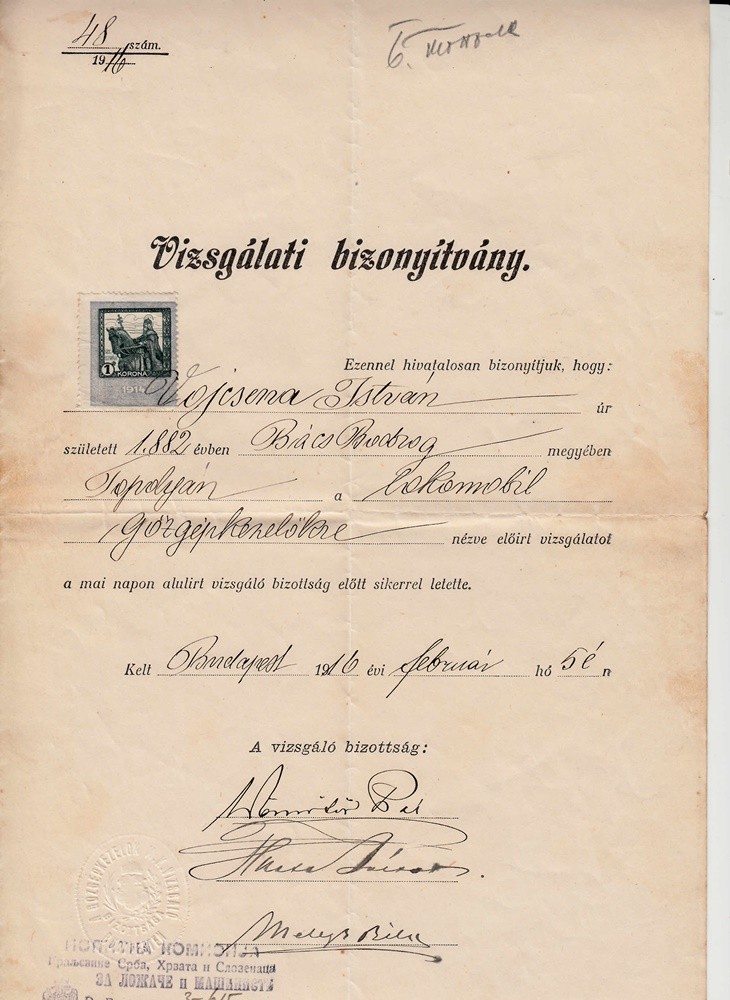 48 szám.
1916
Vizsgálati bizonyítvány.
1 KORONA
1914
Ezennel hivatalosan bizonyítjuk, hogy:
Vojcsena István úr
született 1.882 évben Bács Bodrog megyében
Topolyán a lokomobil
gőzgépkezelőkre nézve előirt vizsgálatot
a mai napon alulirt vizsgáló bizottság előtt sikerrel letette.
Kelt Budapest 1916 évi február hó 5én
A vizsgáló bizottság:
Pál
Melys Béla
КОМИСИЈА
Краљевине Срба, Хрвата и Словенаца
ЗА ЛОЖАЧЕ и МАШИНИСТЕ